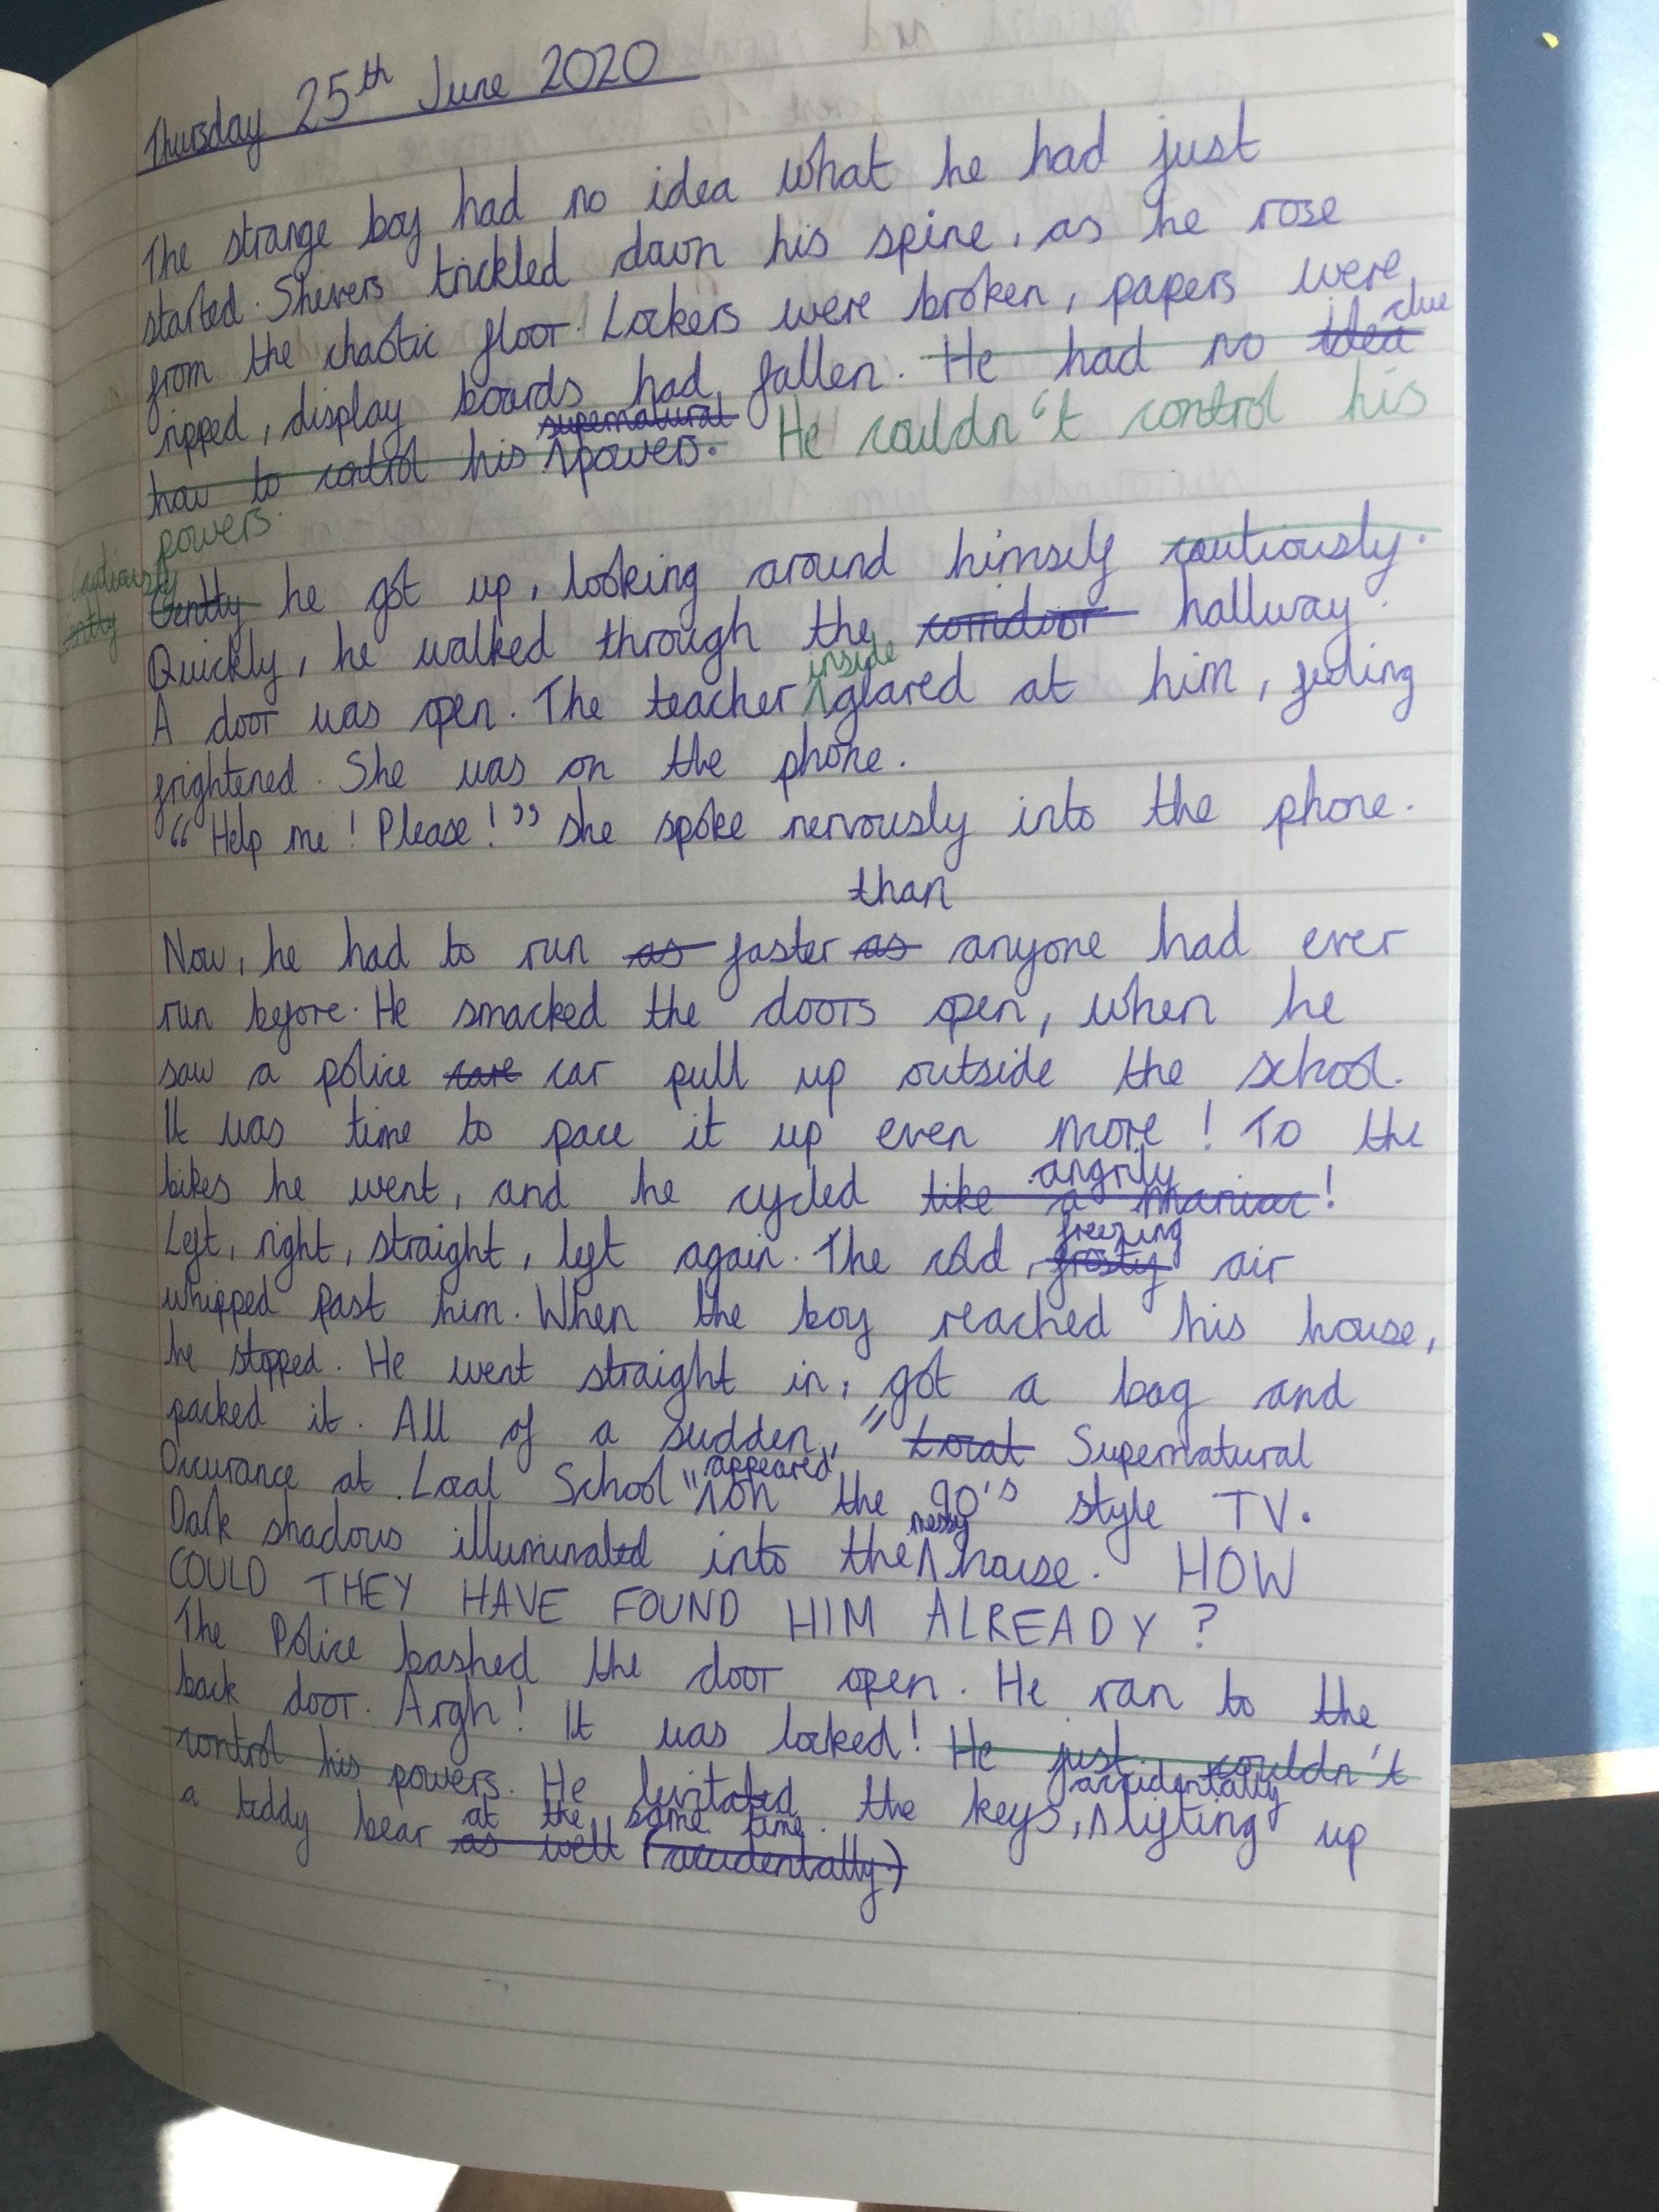 Thursday 25th June 2020
The strange boy had no idea what he had just
started. Shivers trickled down his spine, as he rose
from the chaotic floor. Lockers were broken, papers were
ripped, display boards had fallen. He had no idea clue
how to control his supernatural powers. He couldn't control his
powers.
Cautiously
Gently he got up, looking around himself cautiously.
Quickly, he walked through the corridoor hallway.
A door was open. The teacher inside glared at him, feeling
frightened. She was on the phone.
"Help me! Please!" she spoke nervously into the phone.
than
Now, he had to run as faster as anyone had ever
run before. He smacked the doors open, when he
saw a police care car pull up outside the school.
It was time to pace it up even more! To the
bikes he went, and he cycled like a maniac angrily!
Left, right, straight, left again. The cold, frosty freezing air
whipped past him. When the boy reached his house,
he stopped. He went straight in, got a bag and
packed it. All of a sudden, "Local Supernatural
Occurance at Local School" appeared on the 90's style TV.
Dark shadows illuminated into the messy house. HOW
COULD THEY HAVE FOUND HIM ALREADY?
The Police bashed the door open. He ran to the
back door. Argh! It was locked! He just couldn't
control his powers. He levitated the keys, accidentally lifting up
a teddy bear as well at the same time. (accidentally.)